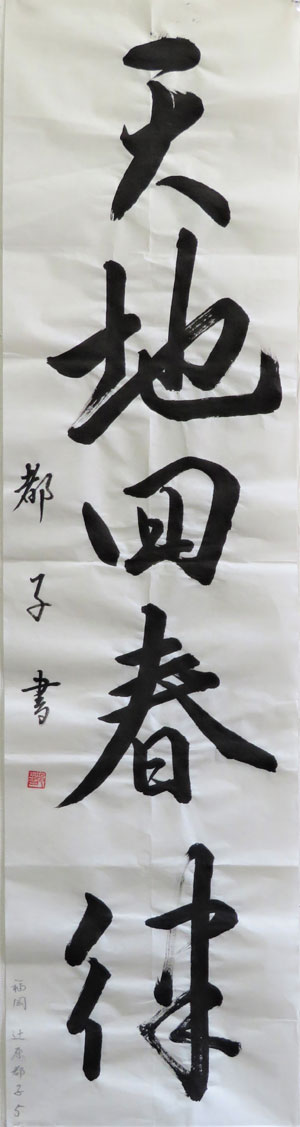 天地回春律
都子書
福岡 辻原都子